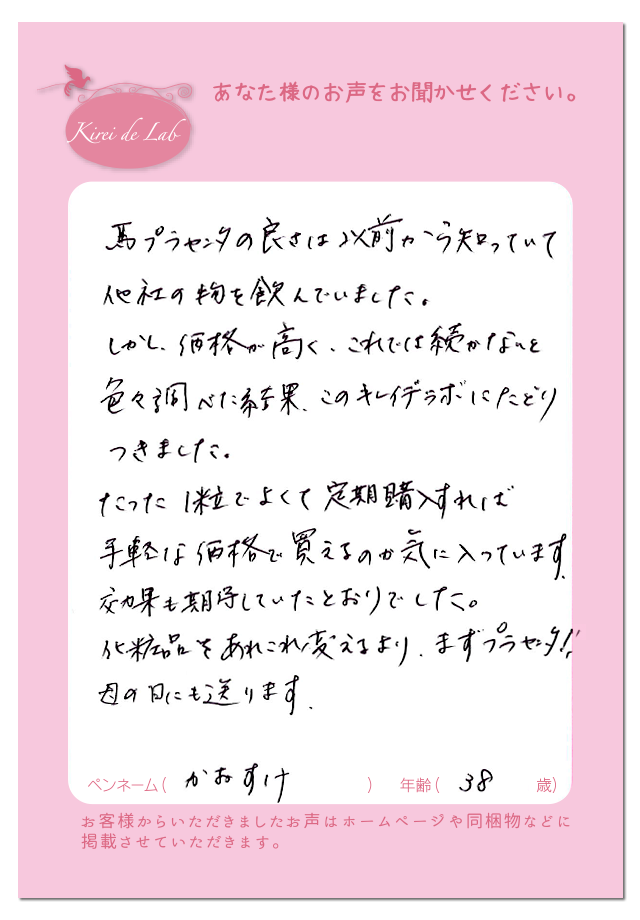 あなた様のお声をお聞かせください。
Kirei de Lab
馬プラセンタの良さは以前から知っていて
他社の物を飲んでいました。
しかし、価格が高く、これでは続かないと
色々調べた結果、このキレイデラボにたどり
つきました。
たった1粒でよくて定期購入すれば
手軽な価格で買えるのが気に入っています。
効果も期待していたとおりでした。
化粧品をあれこれ変えるより、まずプラセンタ!!
母の日にも送ります。
ペンネーム( かおすけ ) 年齢( 38 歳)
お客様からいただきましたお声はホームページや同梱物などに
掲載させていただきます。